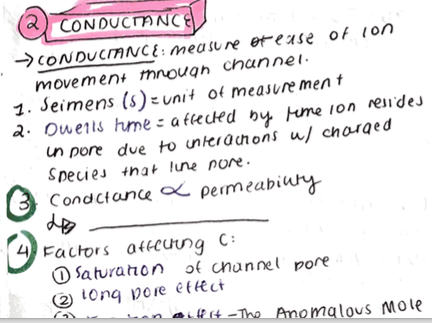 2 CONDUCTANCE
→ CONDUCTANCE: measure of ease of ion
movement through channel.
1. Seimens (s) = unit of measurement
2. Dwells time = affected by time ion resides
in pore due to interactions w/ charged
species that line pore.
3 Condctance ∝ permeability
4 Factors affecting C:
① Saturation of channel pore
② long pore effect
effect - The Anomalous Mole